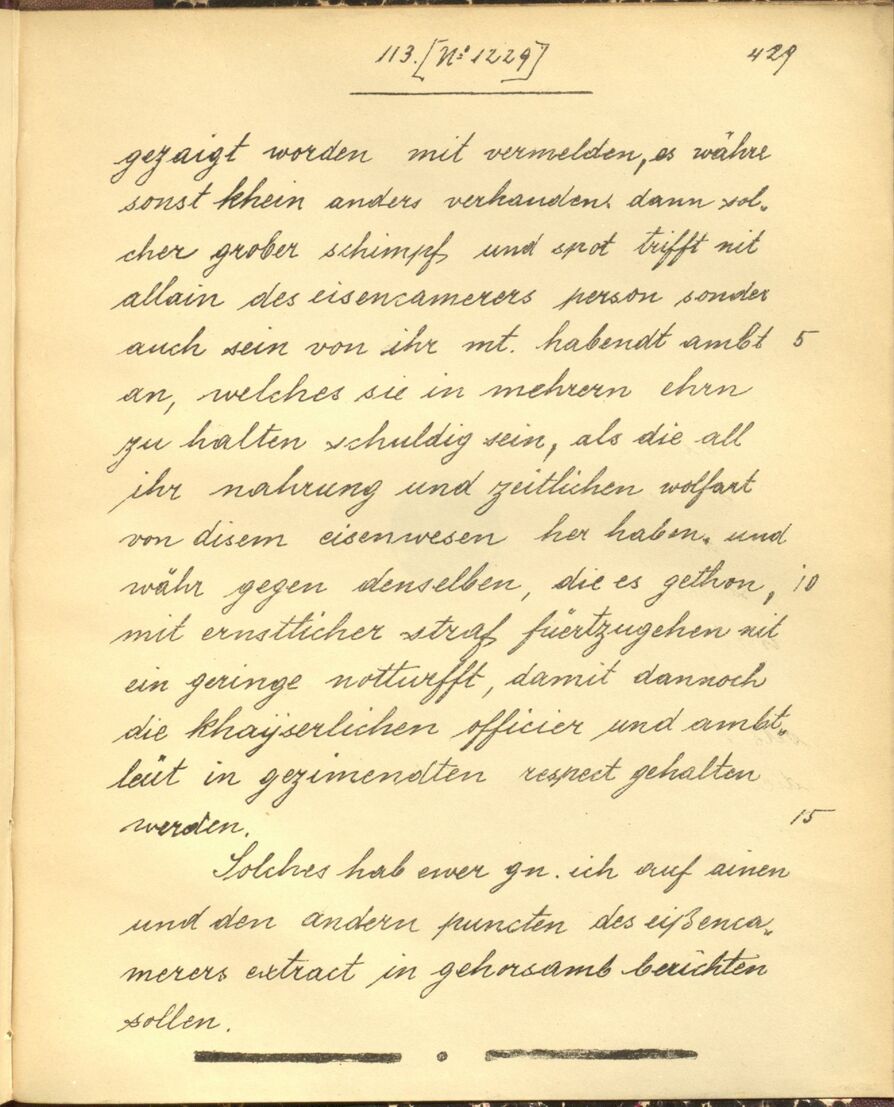 113. [N⁰ 1229] 429
gezaigt worden mit vermelden, es währe
sonst khein anders verhanden. dann sol-
cher grober schimpf und spot trifft nit
allain des eisencamerers person sonder
auch sein von ihr mt. habendt ambt 5
an, welches sie in mehrern ehrn
zu halten schuldig sein, als die all
ihr nahrung und zeitlichen wolfart
von disem eisenwesen her haben. und
währ gegen denselben, die es gethon, 10
mit ernstlicher straf füertzugehen nit
ein geringe notturfft, damit dannoch
die khaÿserlichen officier und ambt-
leüt in gezimendten respect gehalten
werden. 15
Solches hab ewer gn. ich auf ainen
und den andern puncten des eißenca-
merers extract in gehorsamb berichten
sollen.